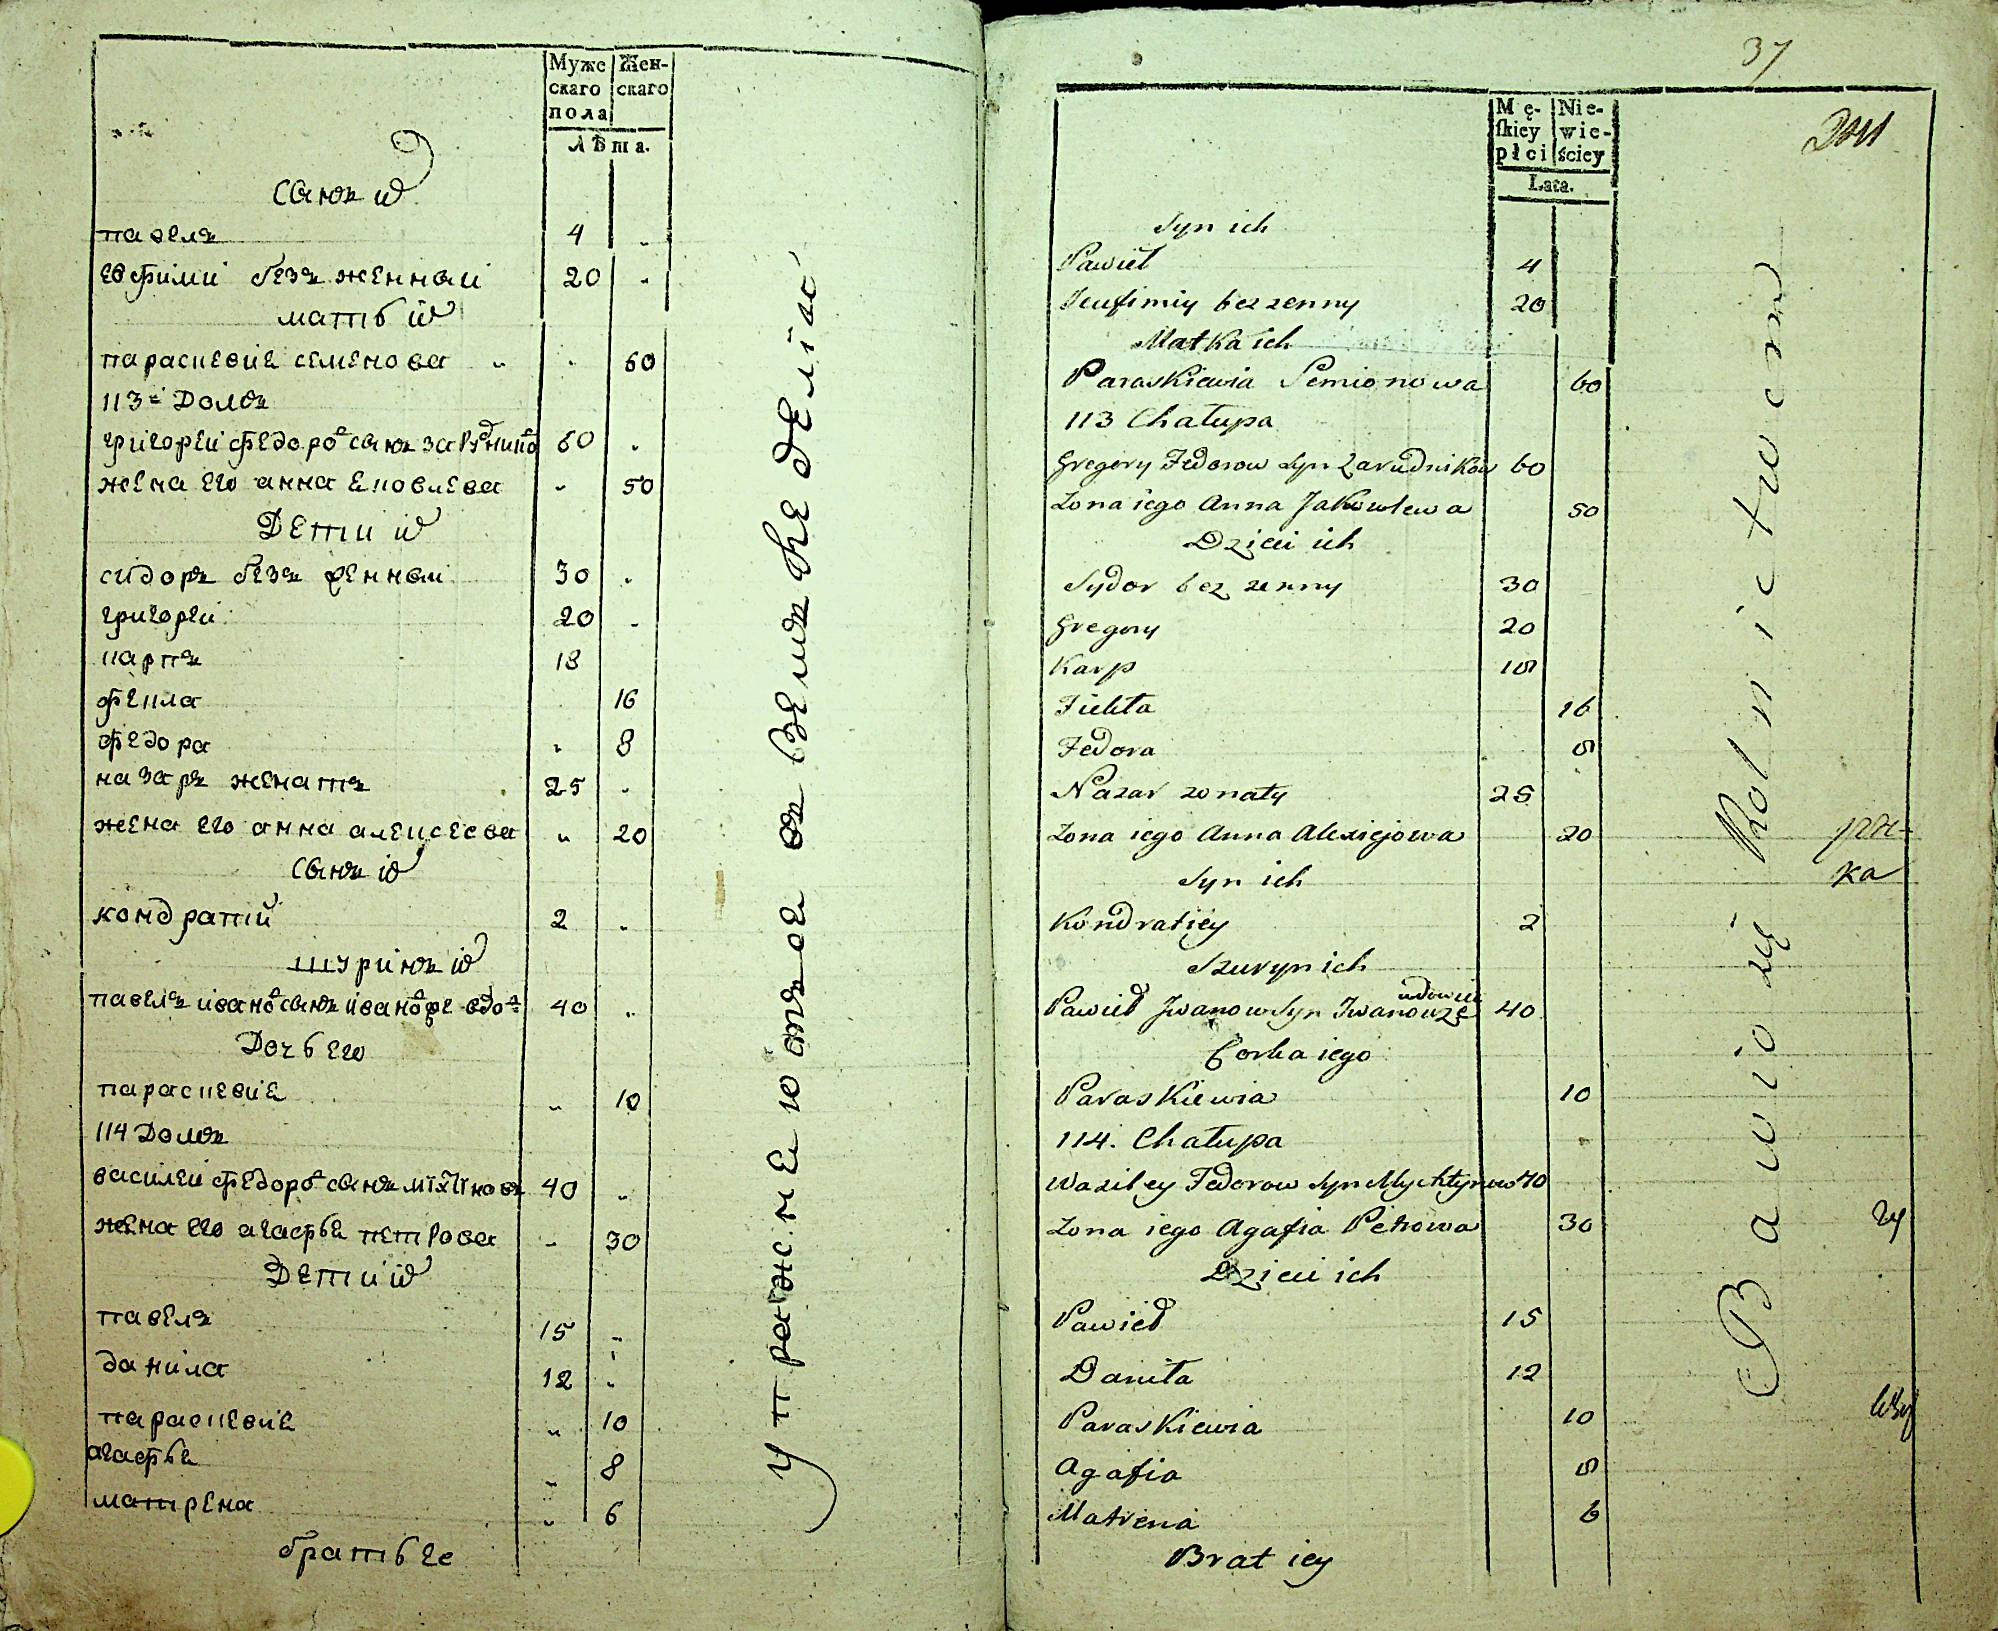 Муже
скаго
пола
Жен-
скаго
лѣта.
сынъ их
павелъ 4 "
евфимій безъ женный 20 "
мать их
параскевіе семенова " " 60
113 = домъ
григорей федоров сынъ заруднико 60 "
жена его анна ековлева " 50
дети их
сидоръ безъ женный 30 "
григорей 20 "
карпъ 18
фекла 16
федора " 8
назаръ женатъ 25 "
жена его анна алексеева " 20
сынъ их
кондратий 2 "
шуринъ их
павелъ иванов сынъ иванов же вдов 40 "
дочь его
параскевие " 10
114 домъ
василей федоров сынъ михтиновъ 40 "
жена его агафье петрова " 30
дети их
павелъ 15 "
данила 12 "
параскевие " 10
агафье " 8
матрена " 6
брать ее
упражнеются въ земледелие
37
Mę-
skiey
płci
Nie-
wie-
ściey
Lata.
Syn ich
Pawieł 4
Jeufimiy bez zenny 20
Matka ich
Paraskiewia Semionowa 60
113 Chałupa
Gregory Fedorow Syn Zarudnikow 60
Zona iego Anna Jakowlewa 50
Dzieci ich
Sydor bez zenny 30
Gregory 20
Karp 18
Fiekła 16
Fedora 8
Nazar zonaty 25
Zona iego Anna Alexiejowa 20
Syn ich
Kondratiey 2
Szuryn ich
Pawieł Jwanow Syn Jwanowże udowiec 40
Corka iego
Paraskiewia 10
114. Chałupa
Wasiley Fedorow Syn Mychtynow 40
Zona iego Agafia Petrowa 30
Dzieci ich
Pawieł 15
Daniła 12
Paraskiewia 10
Agafia 8
Matrena 6
Brat iey
Bawio się Rolnictwem
ка